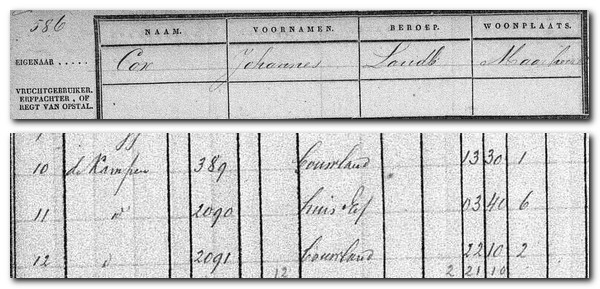 586
NAAM. VOORNAMEN. BEROEP. WOONPLAATS.
EIGENAAR ..... Cox Johannes Landb Maasbree
VRUCHTGEBRUIKER.
ERFPACHTER, OF
REGT VAN OPSTAL.
10 de Kampen 389 bouwland 13 30 1
11 " 2090 huis & Erf 03 40 6
12 " 2091 bouwland 22 10 2
12 2 21 10